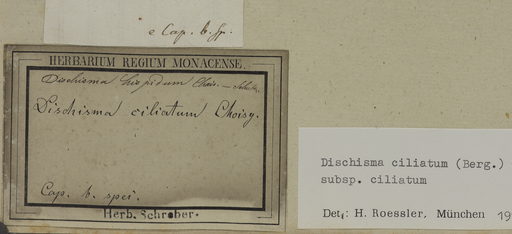 e Cap. b. sp.
HERBARIUM REGIUM MONACENSE.
Dischisma hispidum Chois. —
Dischisma ciliatum Choisy.
Cap. b. spei.
Herb. Schreber.
Dischisma ciliatum (Berg.)
subsp. ciliatum
Det.: H. Roessler, München 19